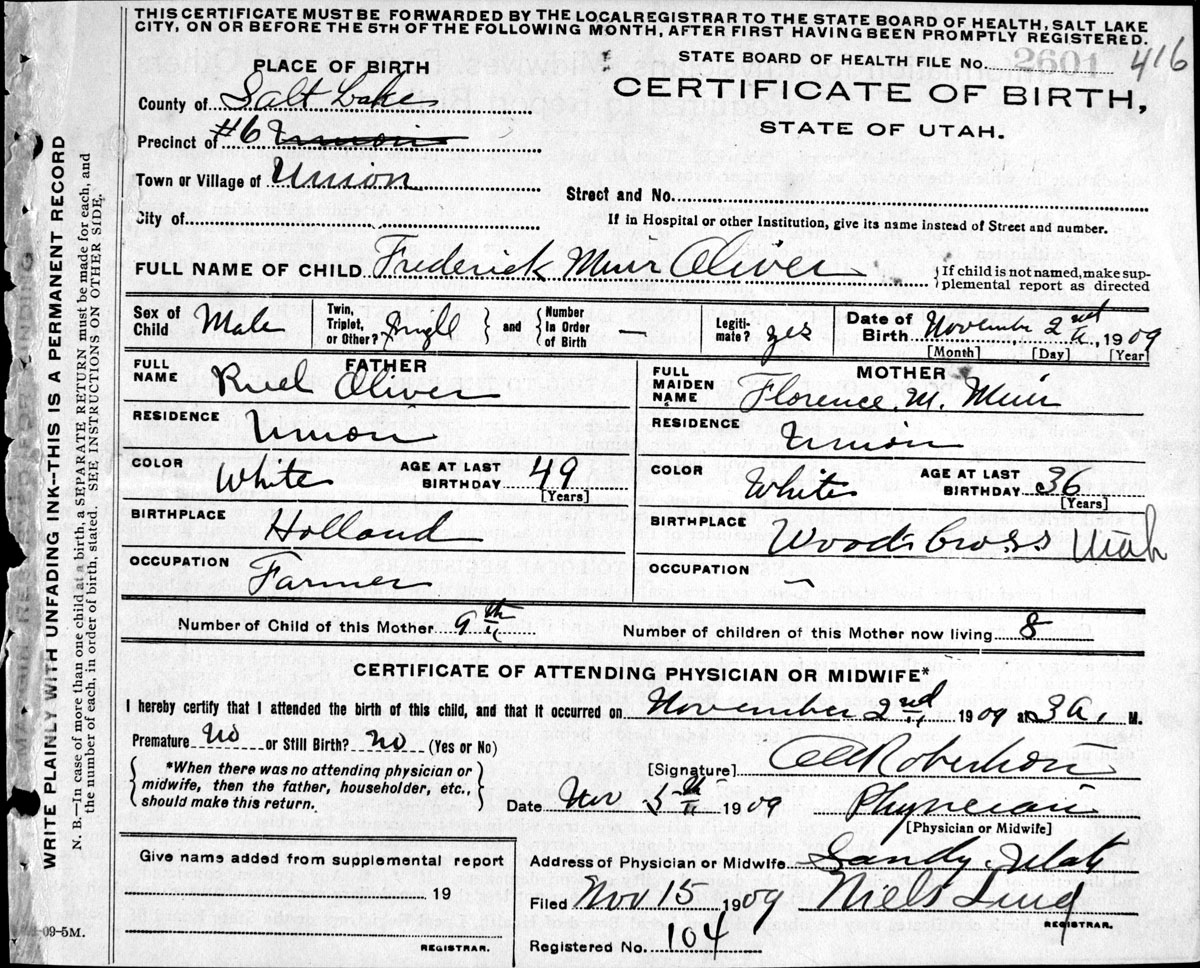 THIS CERTIFICATE MUST BE FORWARDED BY THE LOCALREGISTRAR TO THE STATE BOARD OF HEALTH, SALT LAKE
CITY, ON OR BEFORE THE 5TH OF THE FOLLOWING MONTH, AFTER FIRST HAVING BEEN PROMPTLY REGISTERED.
STATE BOARD OF HEALTH FILE No. 2601 416
CERTIFICATE OF BIRTH,
STATE OF UTAH.
PLACE OF BIRTH
County of Salt Lake
Precinct of #6 Union
Town or Village of Union
Street and No.
City of
If in Hospital or other Institution, give its name instead of Street and number.
FULL NAME OF CHILD Frederick Muir Oliver {If child is not named, make sup-
plemental report as directed
Sex of Child Male Twin, Triplet, or Other? Single } and { Number In Order of Birth — Legiti- mate? yes Date of Birth November 2nd, 1909
[Month] [Day] [Year]
FATHER
FULL NAME Ruel Oliver
RESIDENCE Union
COLOR White AGE AT LAST BIRTHDAY 49
[Years]
BIRTHPLACE Holland
OCCUPATION Farmer
MOTHER
FULL MAIDEN NAME Florence M. Muir
RESIDENCE Union
COLOR White AGE AT LAST BIRTHDAY 36
[Years]
BIRTHPLACE Woods Cross Utah
OCCUPATION —
Number of Child of this Mother 9th Number of children of this Mother now living 8
CERTIFICATE OF ATTENDING PHYSICIAN OR MIDWIFE*
I hereby certify that I attended the birth of this child, and that it occurred on November 2nd, 1909 at 3 a, M.
Premature? No or Still Birth? No (Yes or No)
*When there was no attending physician or
midwife, then the father, householder, etc.,
should make this return.
[Signature] Robertson
Date Nov 5th 1909 Physician
[Physician or Midwife]
Give name added from supplemental report
19
REGISTRAR.
Address of Physician or Midwife Sandy, Utah
Filed Nov 15 1909 Niels Lind
REGISTRAR.
Registered No. 104
WRITE PLAINLY WITH UNFADING INK--THIS IS A PERMANENT RECORD
N. B.—In case of more than one child at a birth, a SEPARATE RETURN must be made for each, and
the number of each, in order of birth, stated. SEE INSTRUCTIONS ON OTHER SIDE.
MARGIN RESERVED FOR BINDING
-09-5M.